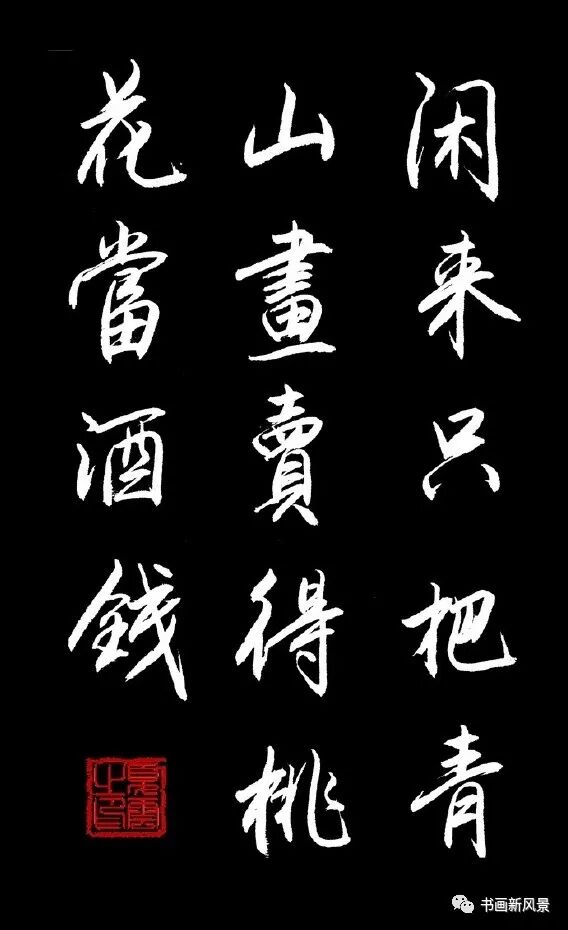 闲来只把青
山畫賣得桃
花當酒钱
书画新风景